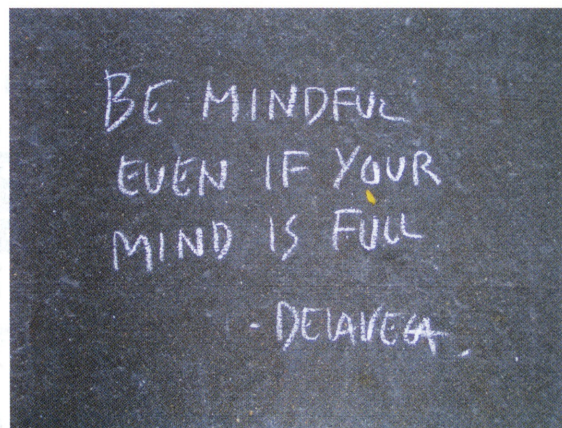 BE MINDFUL
EVEN IF YOUR
MIND IS FULL
- DELAVEGA